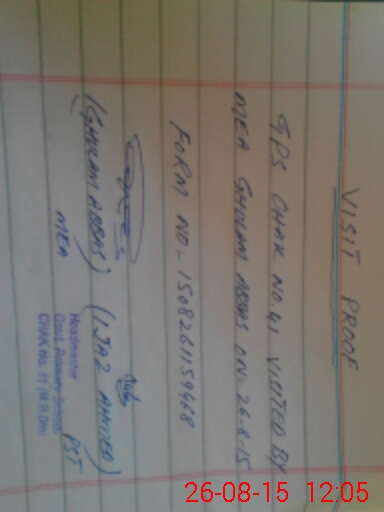 VISIT PROOF
GPS CHAK NO.41 VISITED BY
MEA GHULAM ABBAS ON- 26-8-15
FORM NO- 1508261159468
(GHULAM ABBAS) (IJAZ AHMED)
MEA PST
Headmaster
Govt. Primary School
CHAK No. 41
26-08-15 12:05